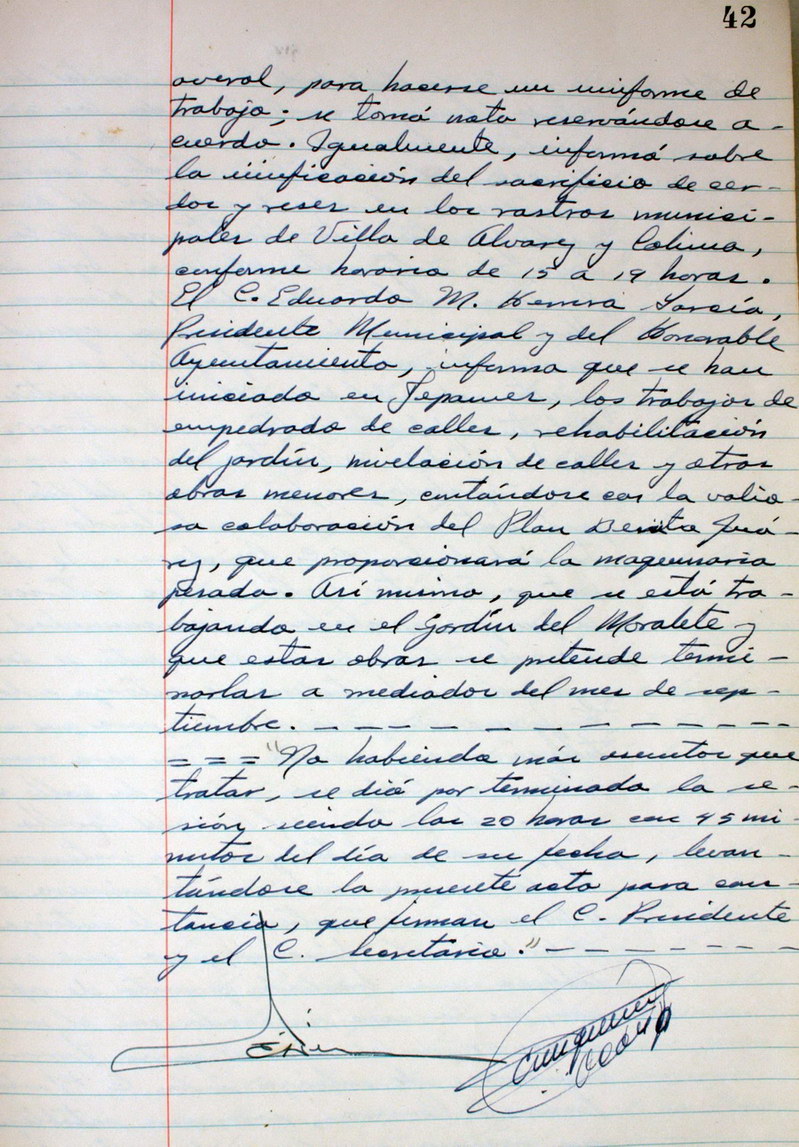 42
overol, para hacerse un uniforme de
trabajo; se tomó nota reservándose a-
cuerdo. Igualmente, informó sobre
la unificación del sacrificio de cer-
dos y reses en los rastros munici-
pales de Villa de Alvarez y Colima,
conforme horario de 15 a 19 horas.
El C. Eduardo M. Herrera García,
Presidente Municipal y del Honorable
Ayuntamiento, informa que se han
iniciado en Tepames, los trabajos de
empedrado de calles, rehabilitación
del jardín, nivelación de calles y otras
obras menores, contándose con la valio-
sa colaboración del Plan Benito Juá-
rez, que proporcionará la maquinaria
pesada. Así mismo, que se está tra-
bajando en el Jardín del Moralete y
que estas obras se pretende termi-
narlas a mediados del mes de sep-
tiembre. — — — — — — — — — — — —
= = = "No habiendo más asuntos que
tratar, se dió por terminada la se-
sión, siendo las 20 horas con 45 mi-
nutos del día de su fecha, levan-
tándose la presente acta para cons-
tancia, que firman el C. Presidente
y el C. Secretario." — — — — — — —